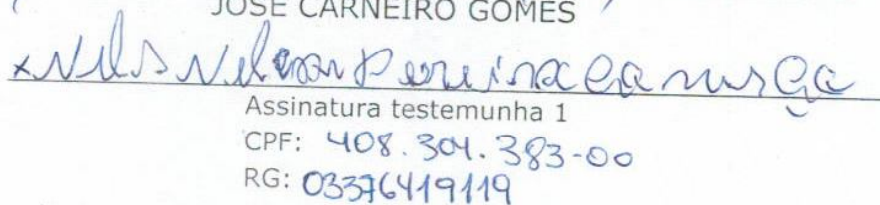 JOSE CARNEIRO GOMES
x Nelson Pereira
Assinatura testemunha 1
CPF: 408.304.383-00
RG: 03376419119